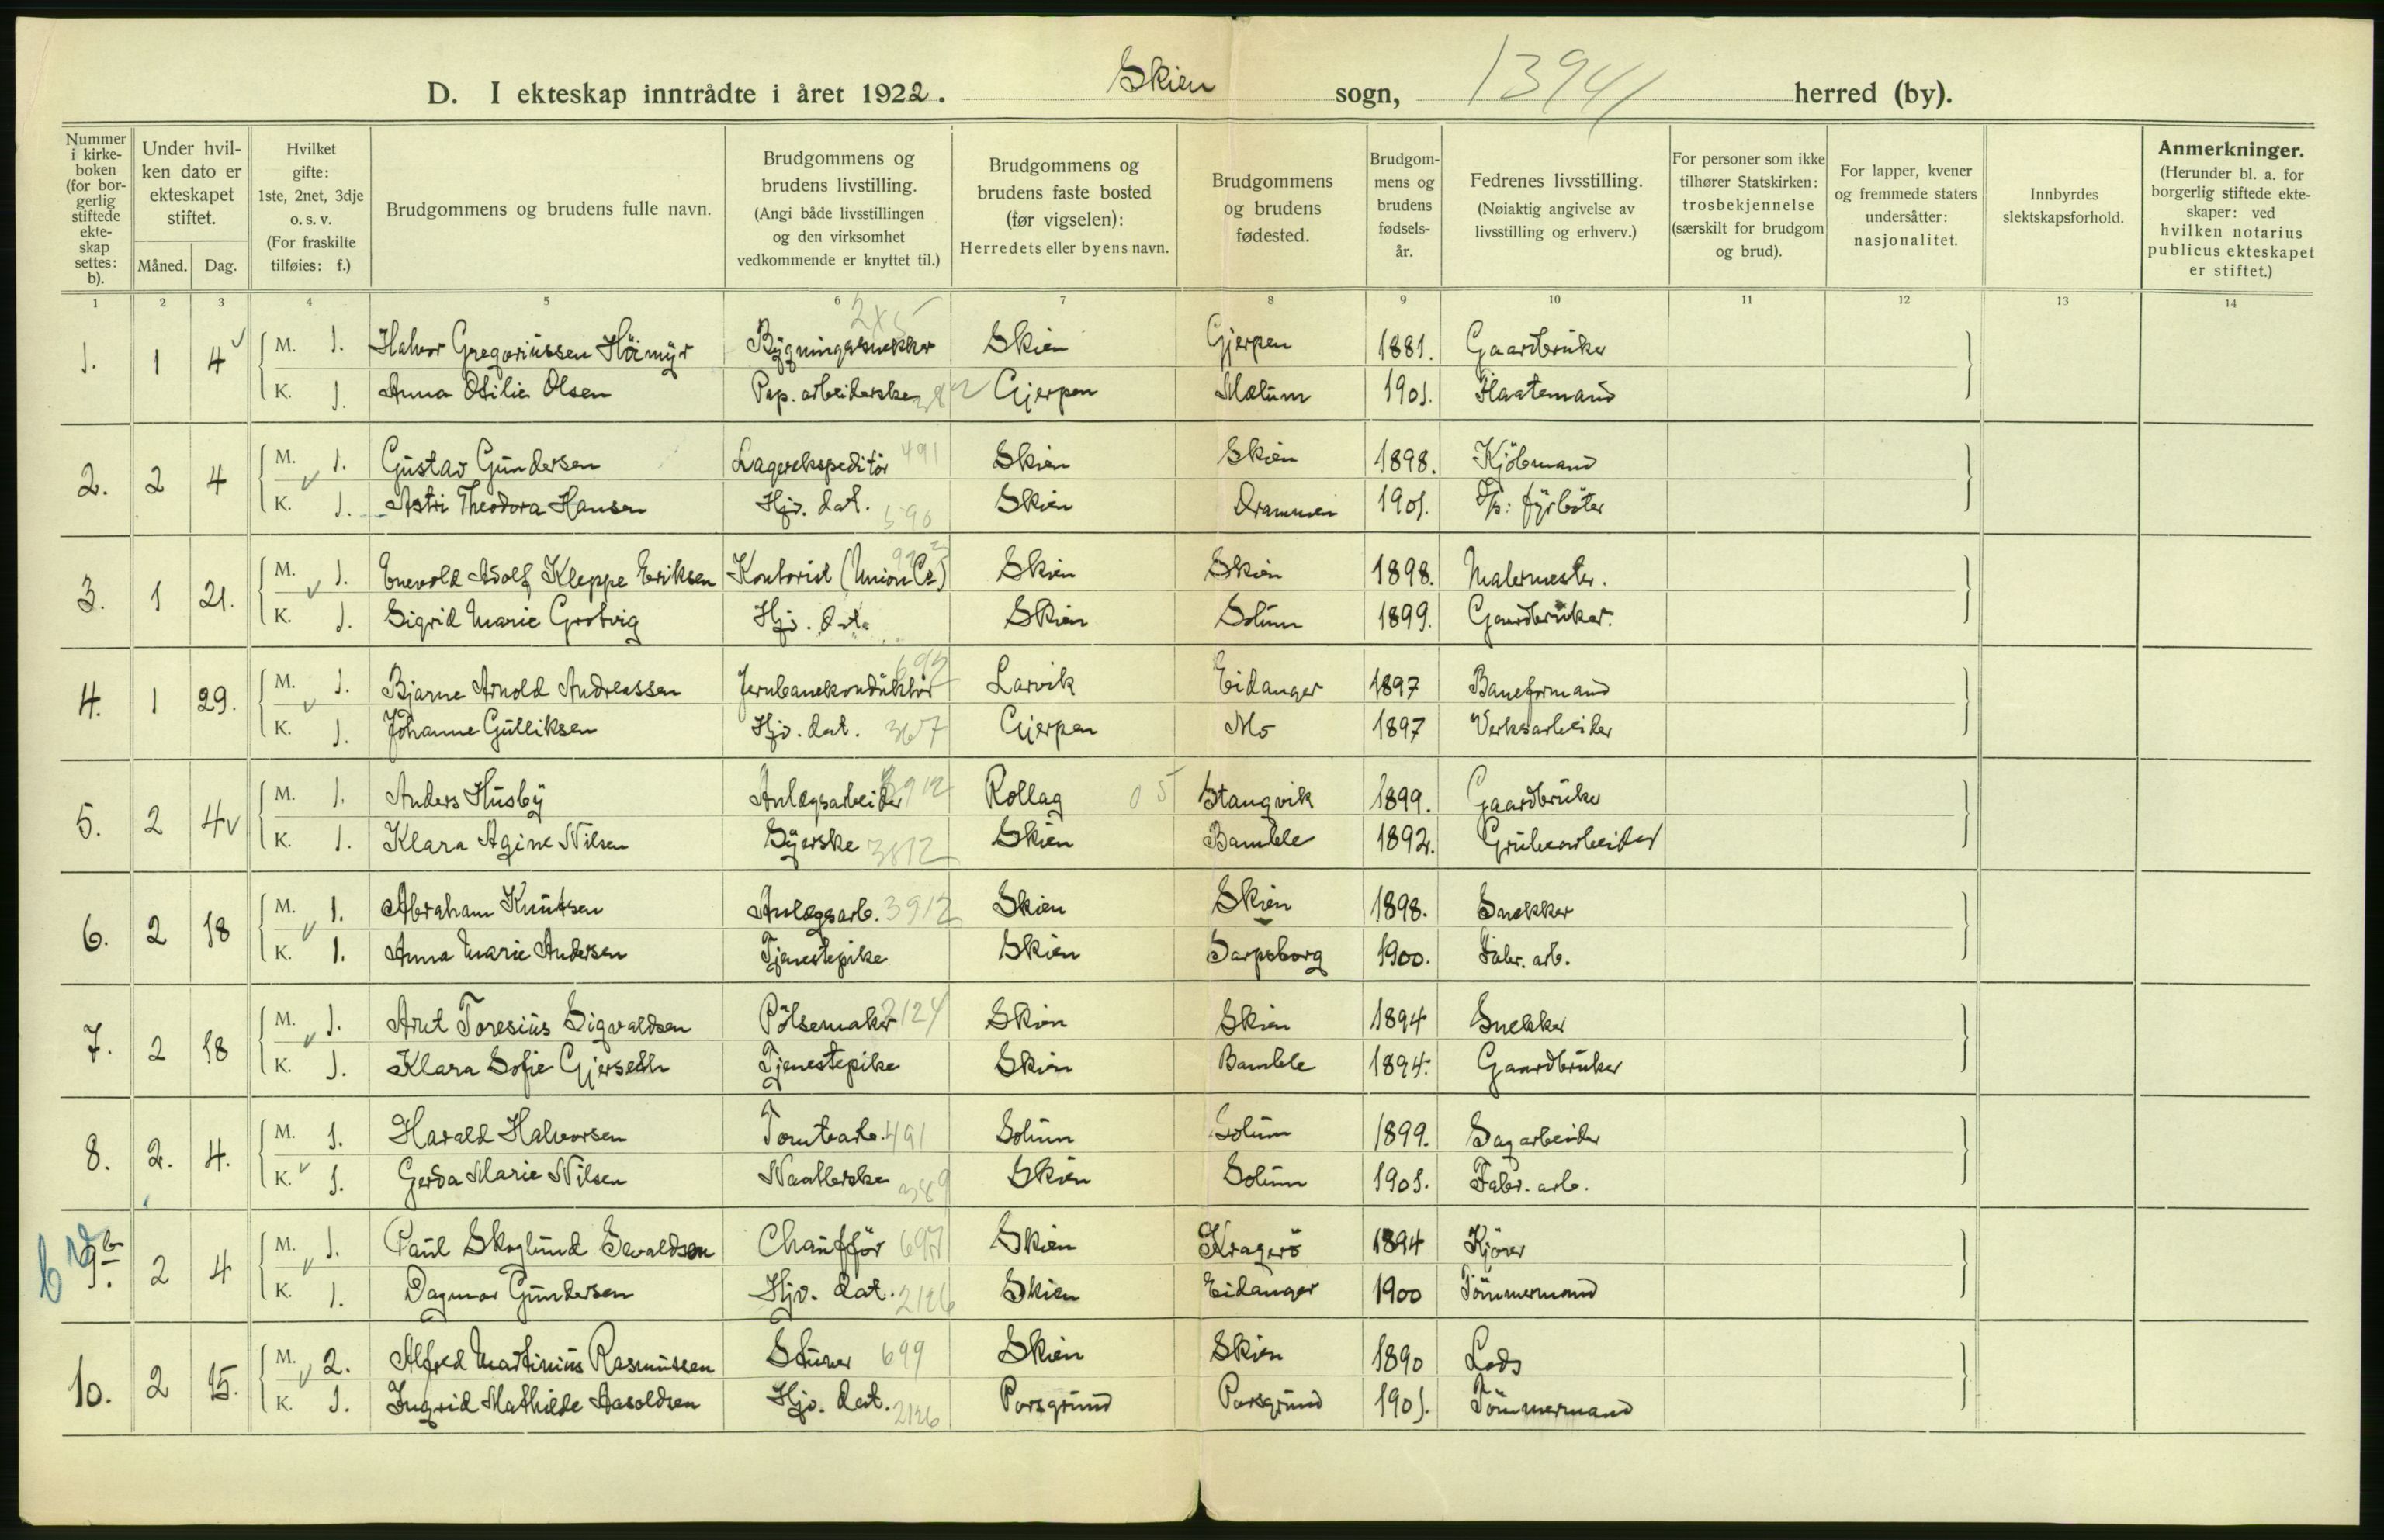 D. I ekteskap inntrådte i året 1922. Skien sogn, 13941 herred (by).
Nummer i kirke-boken (for bor-gerlig stiftede ekte-skap settes: b).
Under hvil-ken dato er ekteskapet stiftet.
Måned. Dag.
Hvilket gifte: 1ste, 2net, 3dje o. s. v. (For fraskilte tilføies: f.)
Brudgommens og brudens fulle navn.
Brudgommens og brudens livstilling. (Angi både livsstillingen og den virksomhet vedkommende er knyttet til.)
Brudgommens og brudens faste bosted (før vigselen): Herredets eller byens navn.
Brudgommens og brudens fødested.
Brudgom-mens og brudens fødsels-år.
Fedrenes livsstilling. (Nøiaktig angivelse av livsstilling og erhverv.)
For personer som ikke tilhører Statskirken: trosbekjennelse (særskilt for brudgom og brud).
For lapper, kvener og fremmede staters undersåtter: nasjonalitet.
Innbyrdes slektskapsforhold.
Anmerkninger. (Herunder bl. a. for borgerlig stiftede ekte-skaper: ved hvilken notarius publicus ekteskapet er stiftet.)
1 2 3 4 5 6 7 8 9 10 11 12 13 14
1. 1 4 M. 1. Halvor Gregoriussen Höimyr Bygningssnekker Skien Gjerpen 1881. Gaardbruker
K. 1. Anna Otilie Olsen Pap. arbeiderske Gjerpen Mælum 1901. Flaatemand
2. 2 4 M. 1. Gustav Gundersen Lagerekspeditör 491 Skien Skien 1898. Kjöbmand
K. 1. Astri Theodora Hansen Hjv. dat. 590 Skien Drammen 1901. fyrböter
3. 1 21. M. 1. Enevold Adolf Kleppe Eriksen Kontorist (Union Co) Skien Skien 1898. Malermester.
K. 1. Sigrid Marie Grotvig Hjv. dat. Skien Solum 1899. Gaardbruker.
4. 1 29. M. 1. Bjarne Arnold Andreassen Jernbanekonduktör Larvik Eidanger 1897 Baneformand
K. 1. Johanne Gulliksen Hjv. dat. 367 Gjerpen Mo 1897 Verksarbeider
5. 2 4 M. 1. Anders Husby Anlægsarbeider 3912 Rollag 05 Stangvik 1899. Gaardbruker
K. 1. Klara Agine Nilsen Syerske 3812 Skien Bamble 1892. Grubearbeider
6. 2 18 M. 1. Abraham Knutsen Anlægsarb. 3912 Skien Skien 1898. Snekker
K. 1. Anna Marie Andersen Tjenestepike Skien Sarpsborg 1900. Fabr. arb.
7. 2 18 M. 1. Arnt Toresius Sigvaldsen Pölsemaker 2124 Skien Skien 1894 Snekker
K. 1. Klara Sofie Gjerseth Tjenestepike Skien Bamble 1894. Gaardbruker
8. 2. 4. M. 1. Harald Halvorsen Tomtearb. 491 Solum Solum 1899. Sagarbeider
K. 1. Gerda Marie Nilsen Naatlerske 349 Skien Solum 1901. Fabr. arb.
9. b 2 4 M. 1. Paul Skoglund Evaldsen Chauffför 697 Skien Kragerö 1894 Kjörer
K. 1. Dagmar Gundersen Hjv. dat. 2126 Skien Eidanger 1900 Tömmermand
10. 2 15. M. 2. Alfred Martinius Rasmussen Stuer 699 Skien Skien 1890 Lods
K. 1. Ingrid Mathilde Aasoldsen Hjv. dat. 2126 Porsgrund Porsgrund 1901. Tömmermand